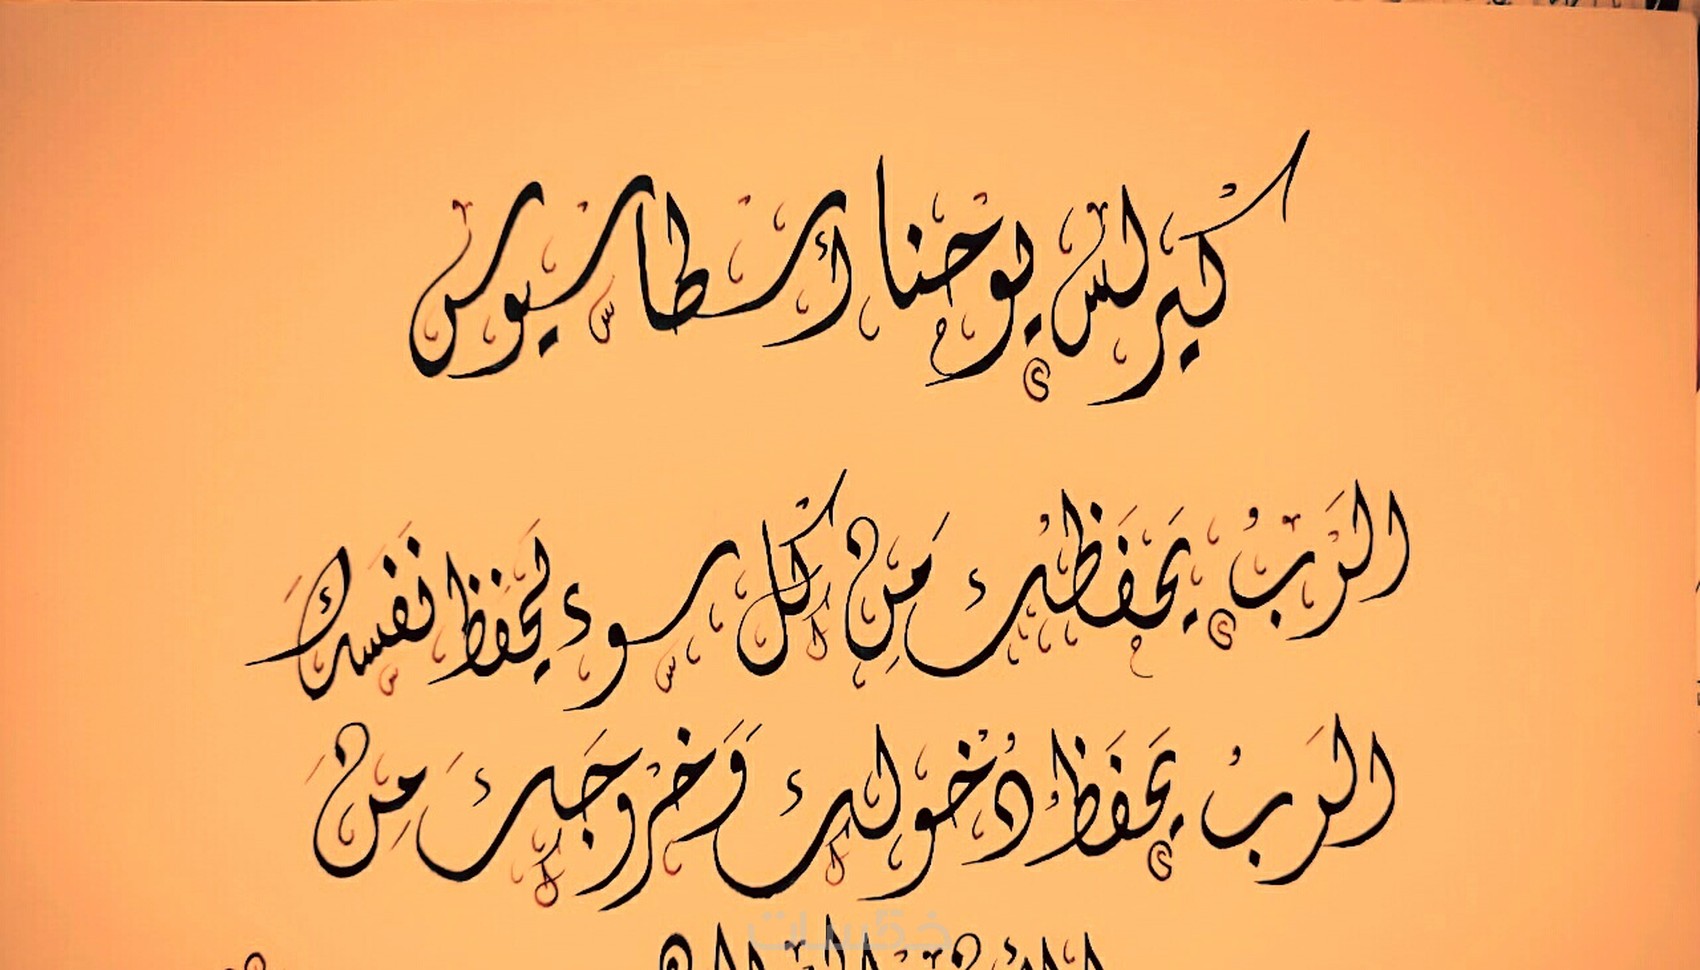 كيرلس يوحنا أسطاسيوس
الرَبُ يَحفَظُك مَن كُل سوء يَحفَظ نَفَسك
الرَبُ يَحفَظُ دُخولك وَخرُوجَكَ مِن
خمسات